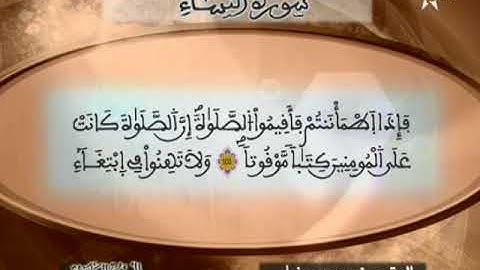 سورة النساء
فَإِذَا اَطْمَأْنَنتُمْ فَأَقِيمُواْ الصَّلَوٰةَ إِنَّ الصَّلَوٰةَ كَانَتْ
عَلَى الْمُومِنِينَ كِتَٰباً مَّوْقُوتاً ۝ وَلَا تَهِنُواْ فِے اِبْتِغَآءِ